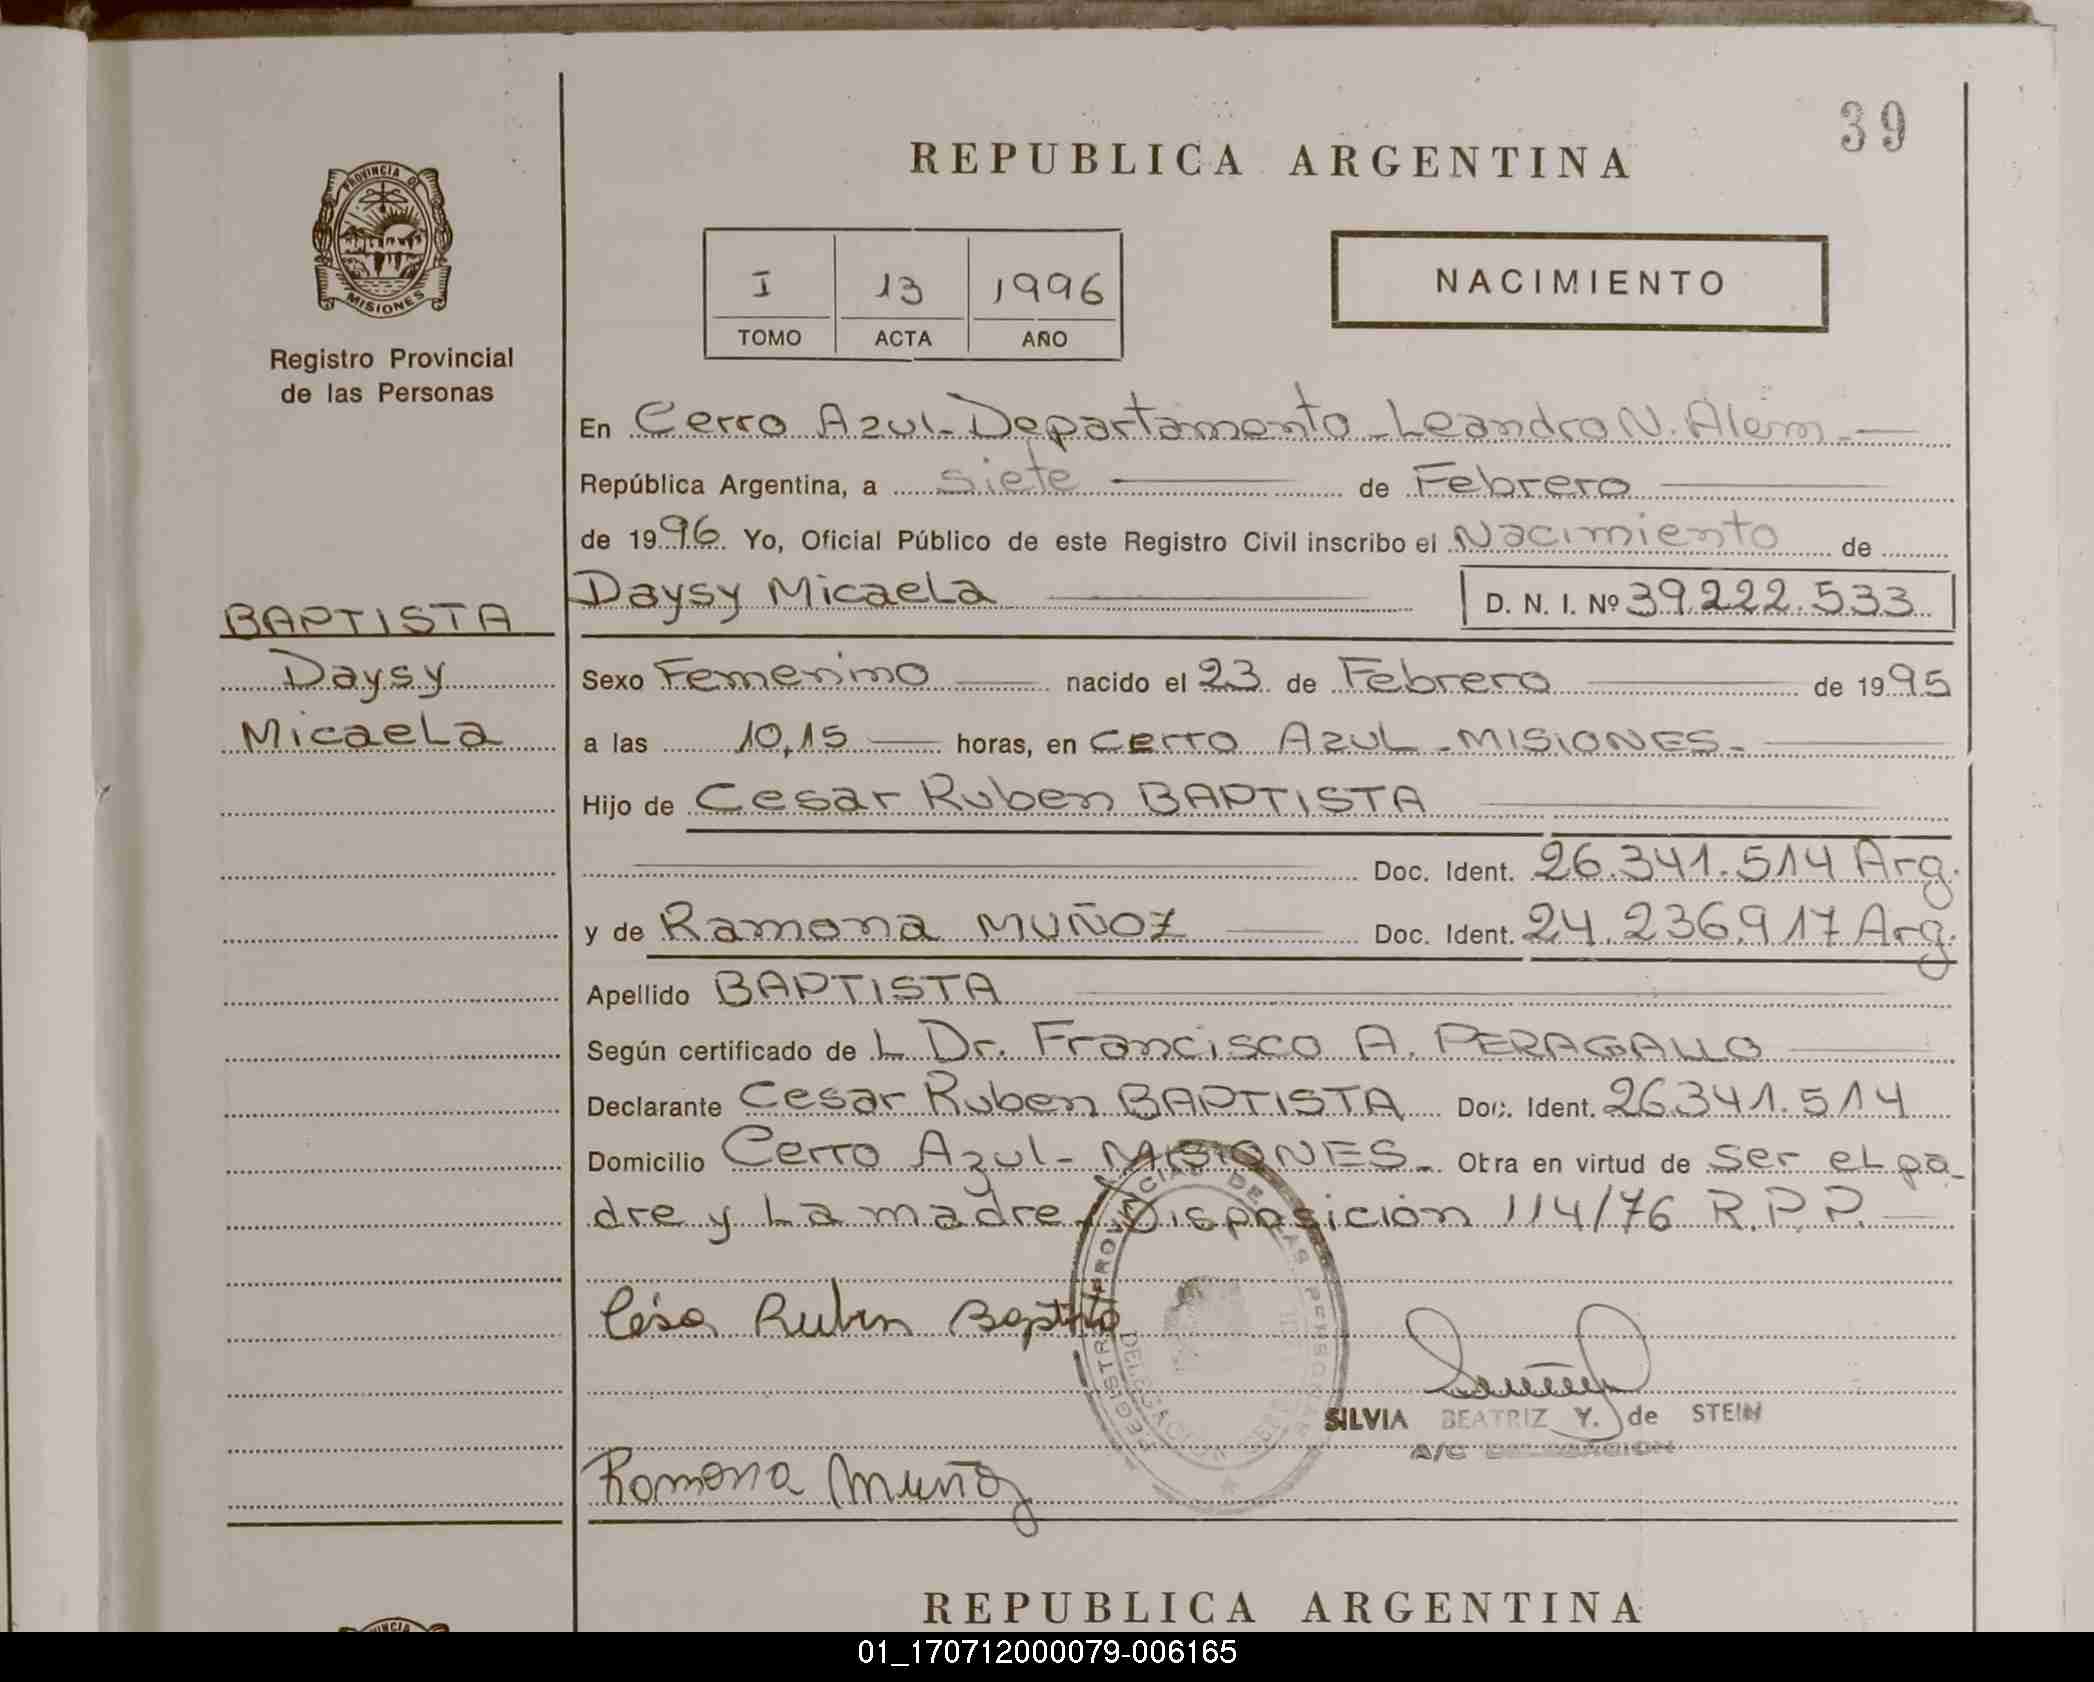 39
REPUBLICA ARGENTINA
PROVINCIA DE
MISIONES
Registro Provincial
de las Personas
I 13 1996
TOMO ACTA AÑO
NACIMIENTO
En Cerro Azul - Departamento - Leandro N. Alem -
República Argentina, a siete de Febrero
de 1996 Yo, Oficial Público de este Registro Civil inscribo el Nacimiento de
Daysy Micaela D. N. I. Nº 39.222.533
BAPTISTA
Daysy
Micaela
Sexo Femenino nacido el 23 de Febrero de 1995
a las 10,15 horas, en Cerro Azul - MISIONES -
Hijo de Cesar Ruben BAPTISTA
Doc. Ident. 26.341.514 Arg.
y de Ramona MUÑOZ Doc. Ident. 24.236.917 Arg.
Apellido BAPTISTA
Según certificado de L Dr. Francisco A. PERAGALLO
Declarante Cesar Ruben BAPTISTA Doc. Ident. 26341.514
Domicilio Cerro Azul - MISIONES - Obra en virtud de ser el pa-
dre y La madre, Disposición 114/76 R.P.P.
REGISTRO PROVINCIAL DE LAS PERSONAS
DELEGACION
César Ruben Baptista
SILVIA BEATRIZ Y. de STEIN
A/C DELEGACION
Ramona Muñoz
REPUBLICA ARGENTINA
01_170712000079-006165